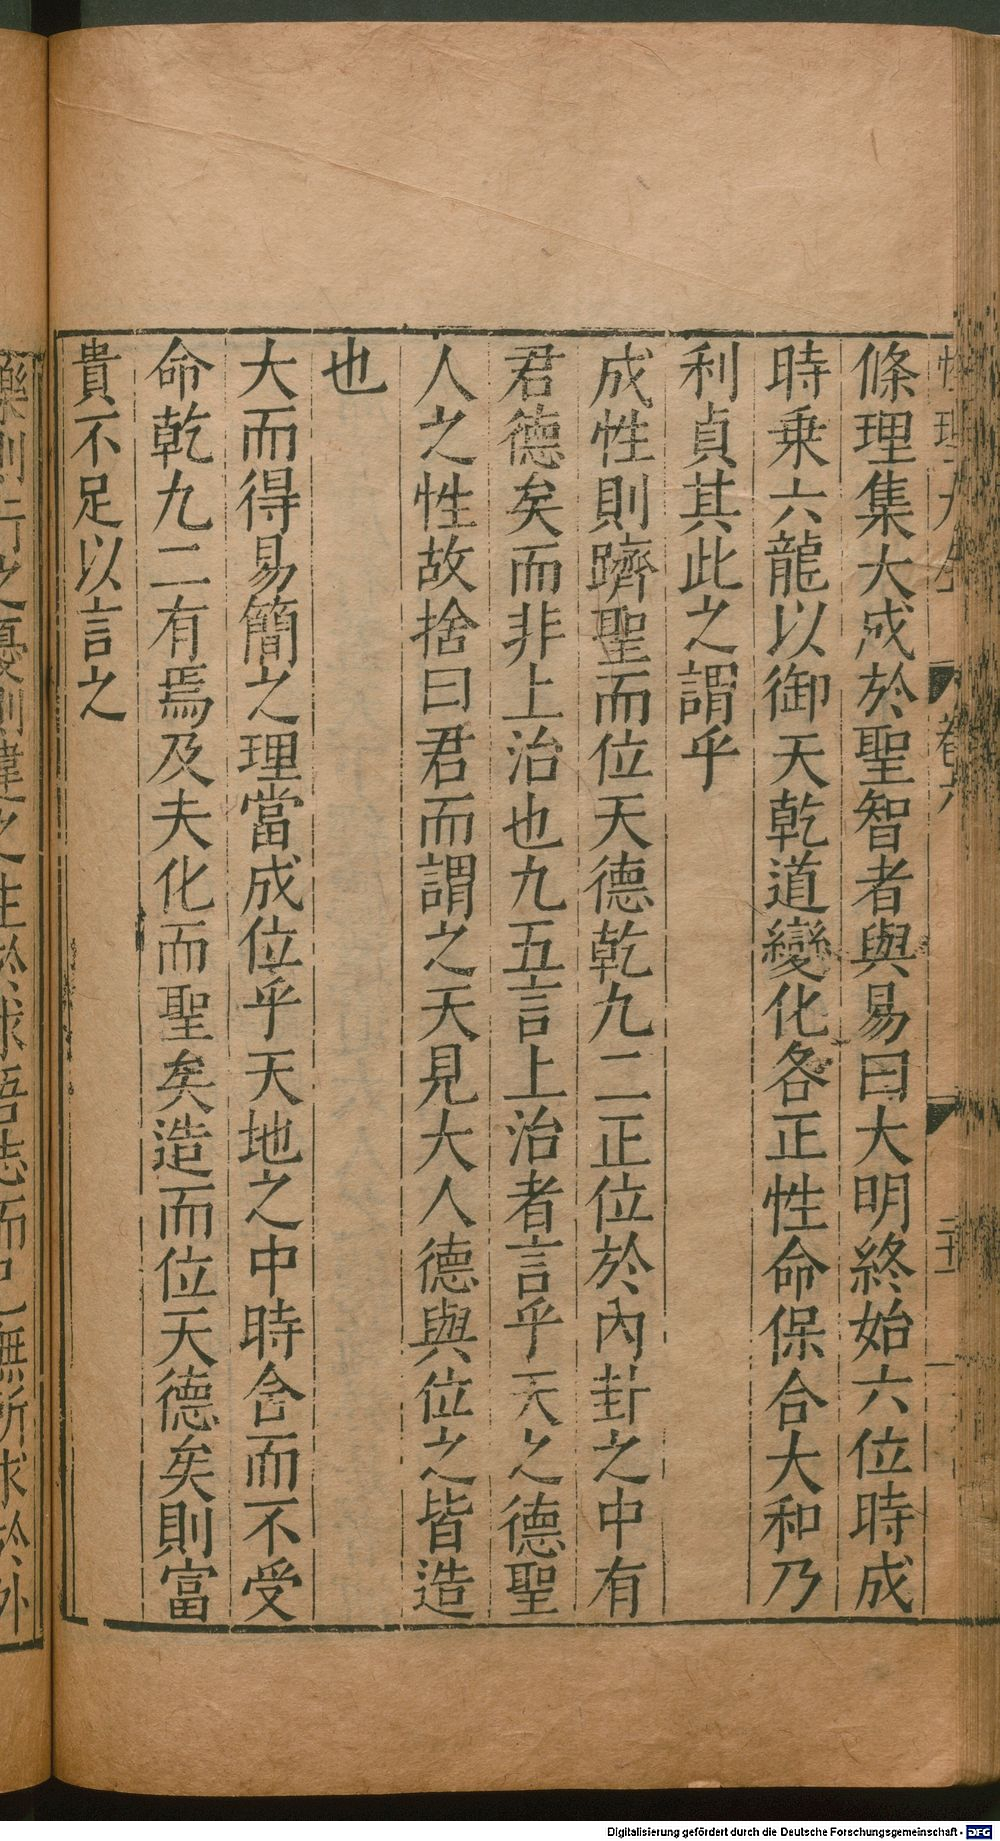 條理集大成於聖智者與易曰大明終始六位時成
時乗六龍以御天乾道變化各正性命保合大和乃
利貞其此之謂乎
成性則躋聖而位天德乾九二正位於內卦之中有
君德矣而非上治也九五言上治者言乎天之德聖
人之性故捨曰君而謂之天見大人德與位之皆造
也
大而得易簡之理當成位乎天地之中時舍而不受
命乾九二有焉及夫化而聖矣造而位天德矣則富
貴不足以言之
樂則行之憂則違之主於求吾志而已無所求於外
Digitalisierung gefördert durch die Deutsche Forschungsgemeinschaft - DFG